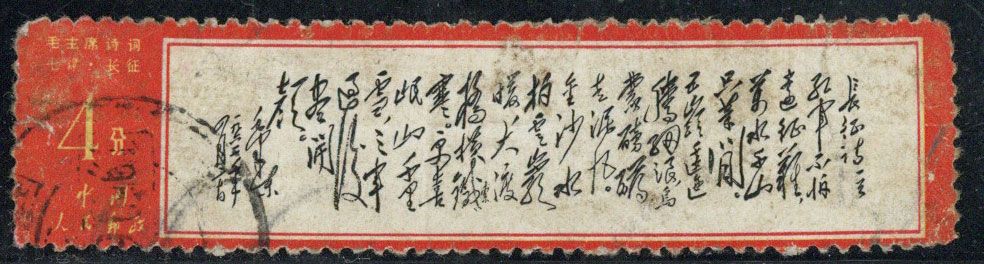 毛主席诗词
七律·长征
4分
中国
人民邮政
长征诗一首
红军不怕
远征难，
万水千山
只等闲。
五岭逶迤
腾细浪乌
蒙磅礴
走泥丸。
金沙水
拍云崖
暖大渡
桥横铁索
寒。更喜
岷山千里
雪，三军
过后
尽开
颜
毛泽东